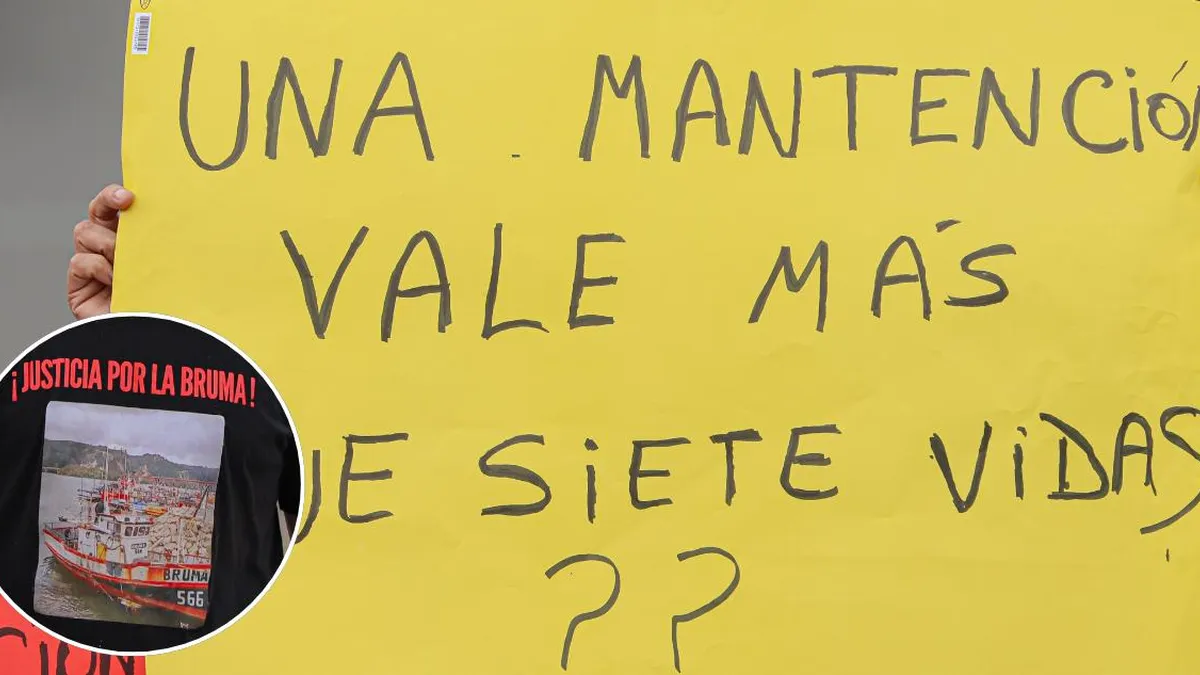 UNA . MANTENCIÓN
VALE MÁS
UE SIETE VIDAS
??
¡JUSTICIA POR LA BRUMA!
BRUMA
566
CIÓN